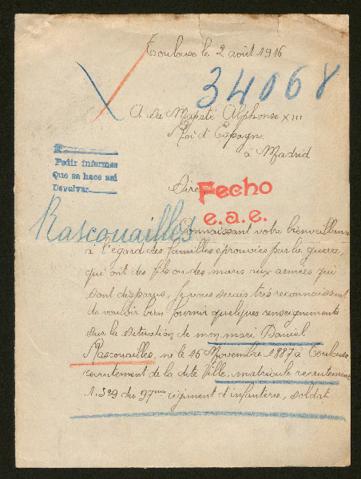 Toulouse le 2 août 1916
34068
A Sa Majesté Alphonse XIII
Roi d'Espagne
à Madrid
Pedir informes
Que se hace así
Devolver
Sire
Fecho
e.a.e.
Rascouailles
Connaissant votre bienveillance
à l'égard des familles éprouvées par la guerre,
qui ont des fils ou des maris aux armées qui
sont disparus, je vous serais très reconnaissant
de vouloir bien fournir quelques renseignements
sur la situation de mon mari Daniel
Rascouailles, né le 16 Novembre 1887 à Toulouse
recrutement de la dite Ville, matricule recrutement
1.529 du 97ème régiment d'infanterie, soldat